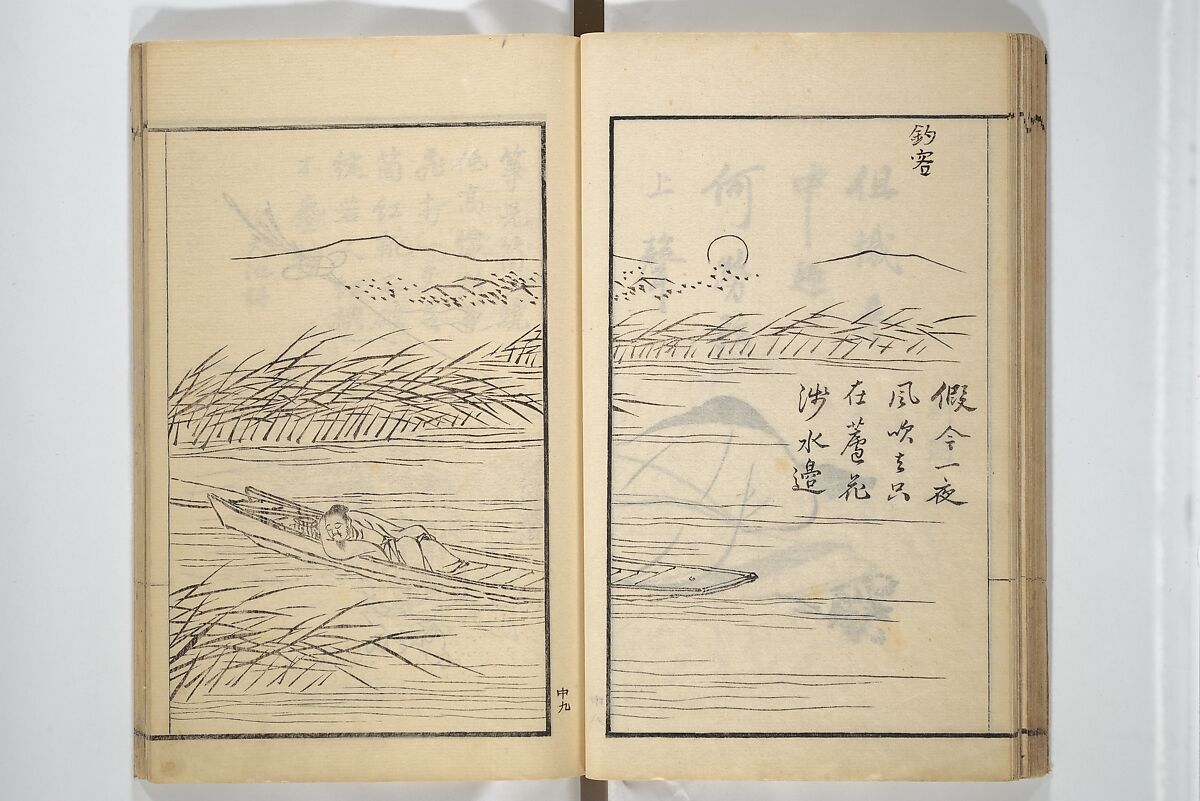 釣客
假令一夜
風吹去只
在蘆花
浅水邊
中九